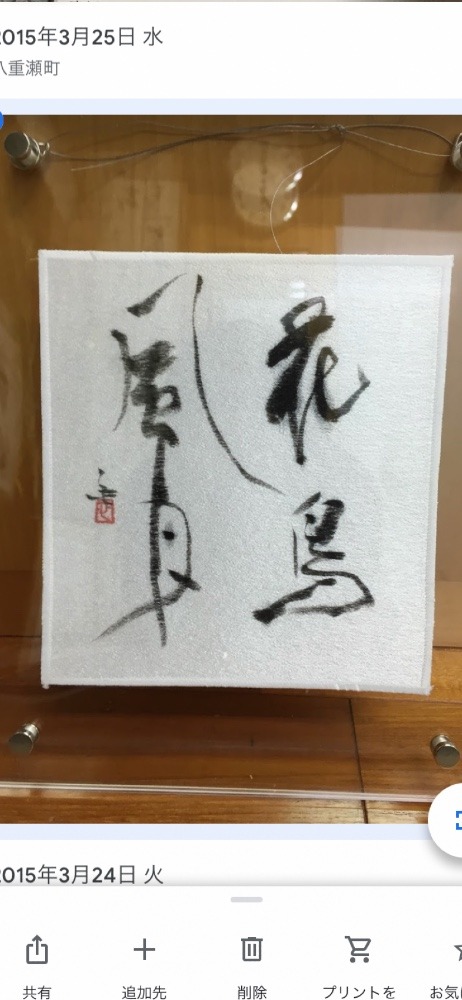 2015年3月25日 水
八重瀬町
花鳥
風月
2015年3月24日 火
共有
追加先
削除
プリントを
お気に